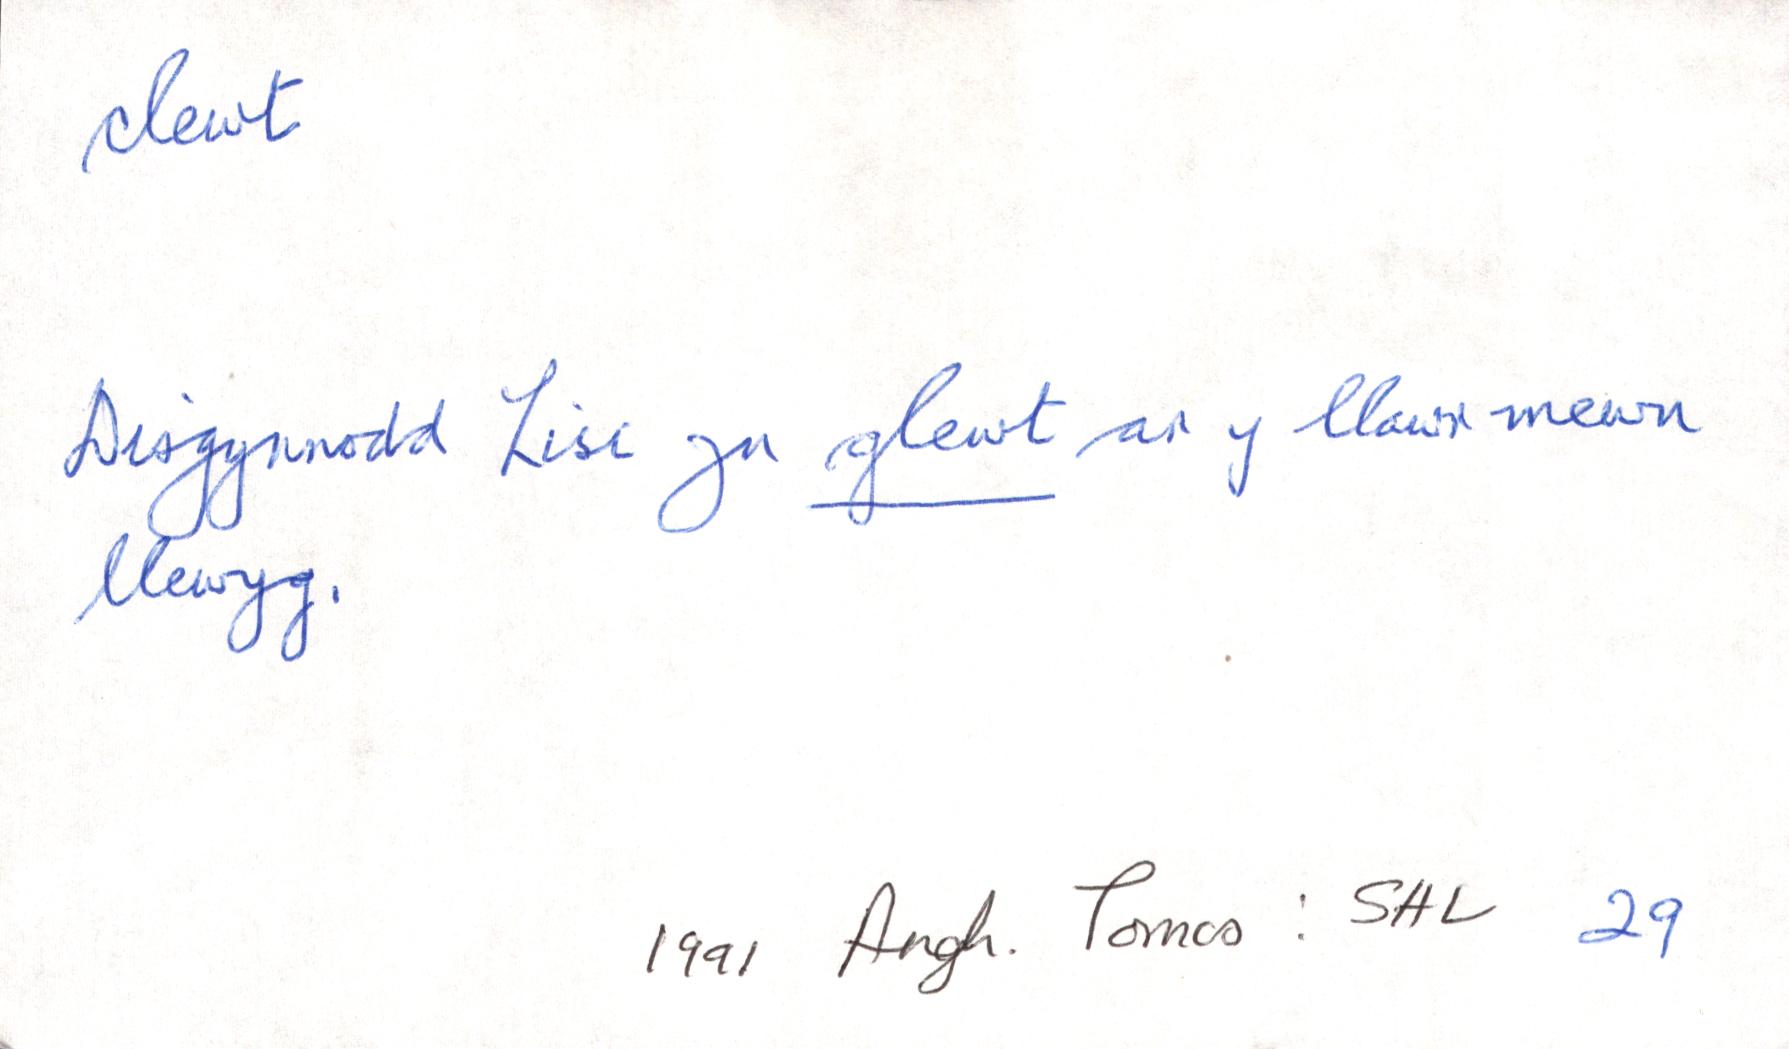 clewt
Disgynnodd Lisi yn glewt ar y llawr mewn
llewyg.
1991 Angh. Tomos : SHL 29